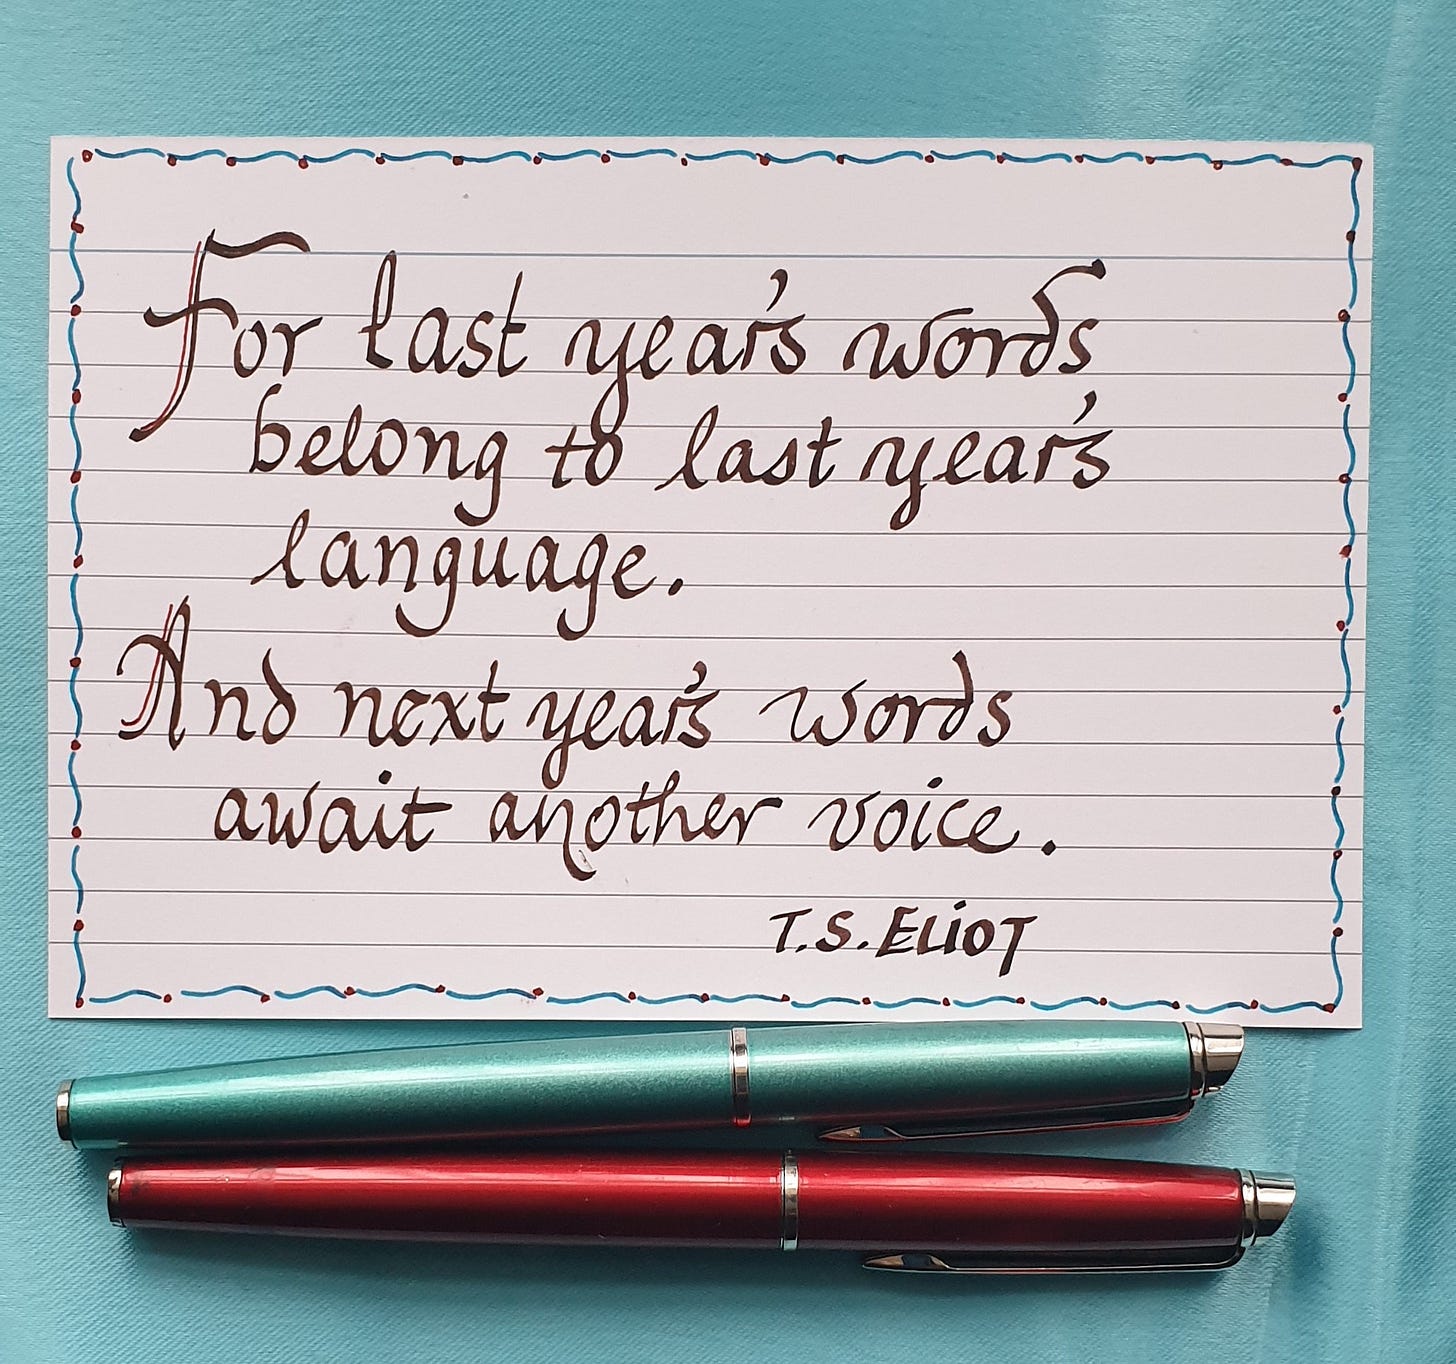 For last year's words
belong to last year's
language.
And next year's words
await another voice.
T.S. ELiOT